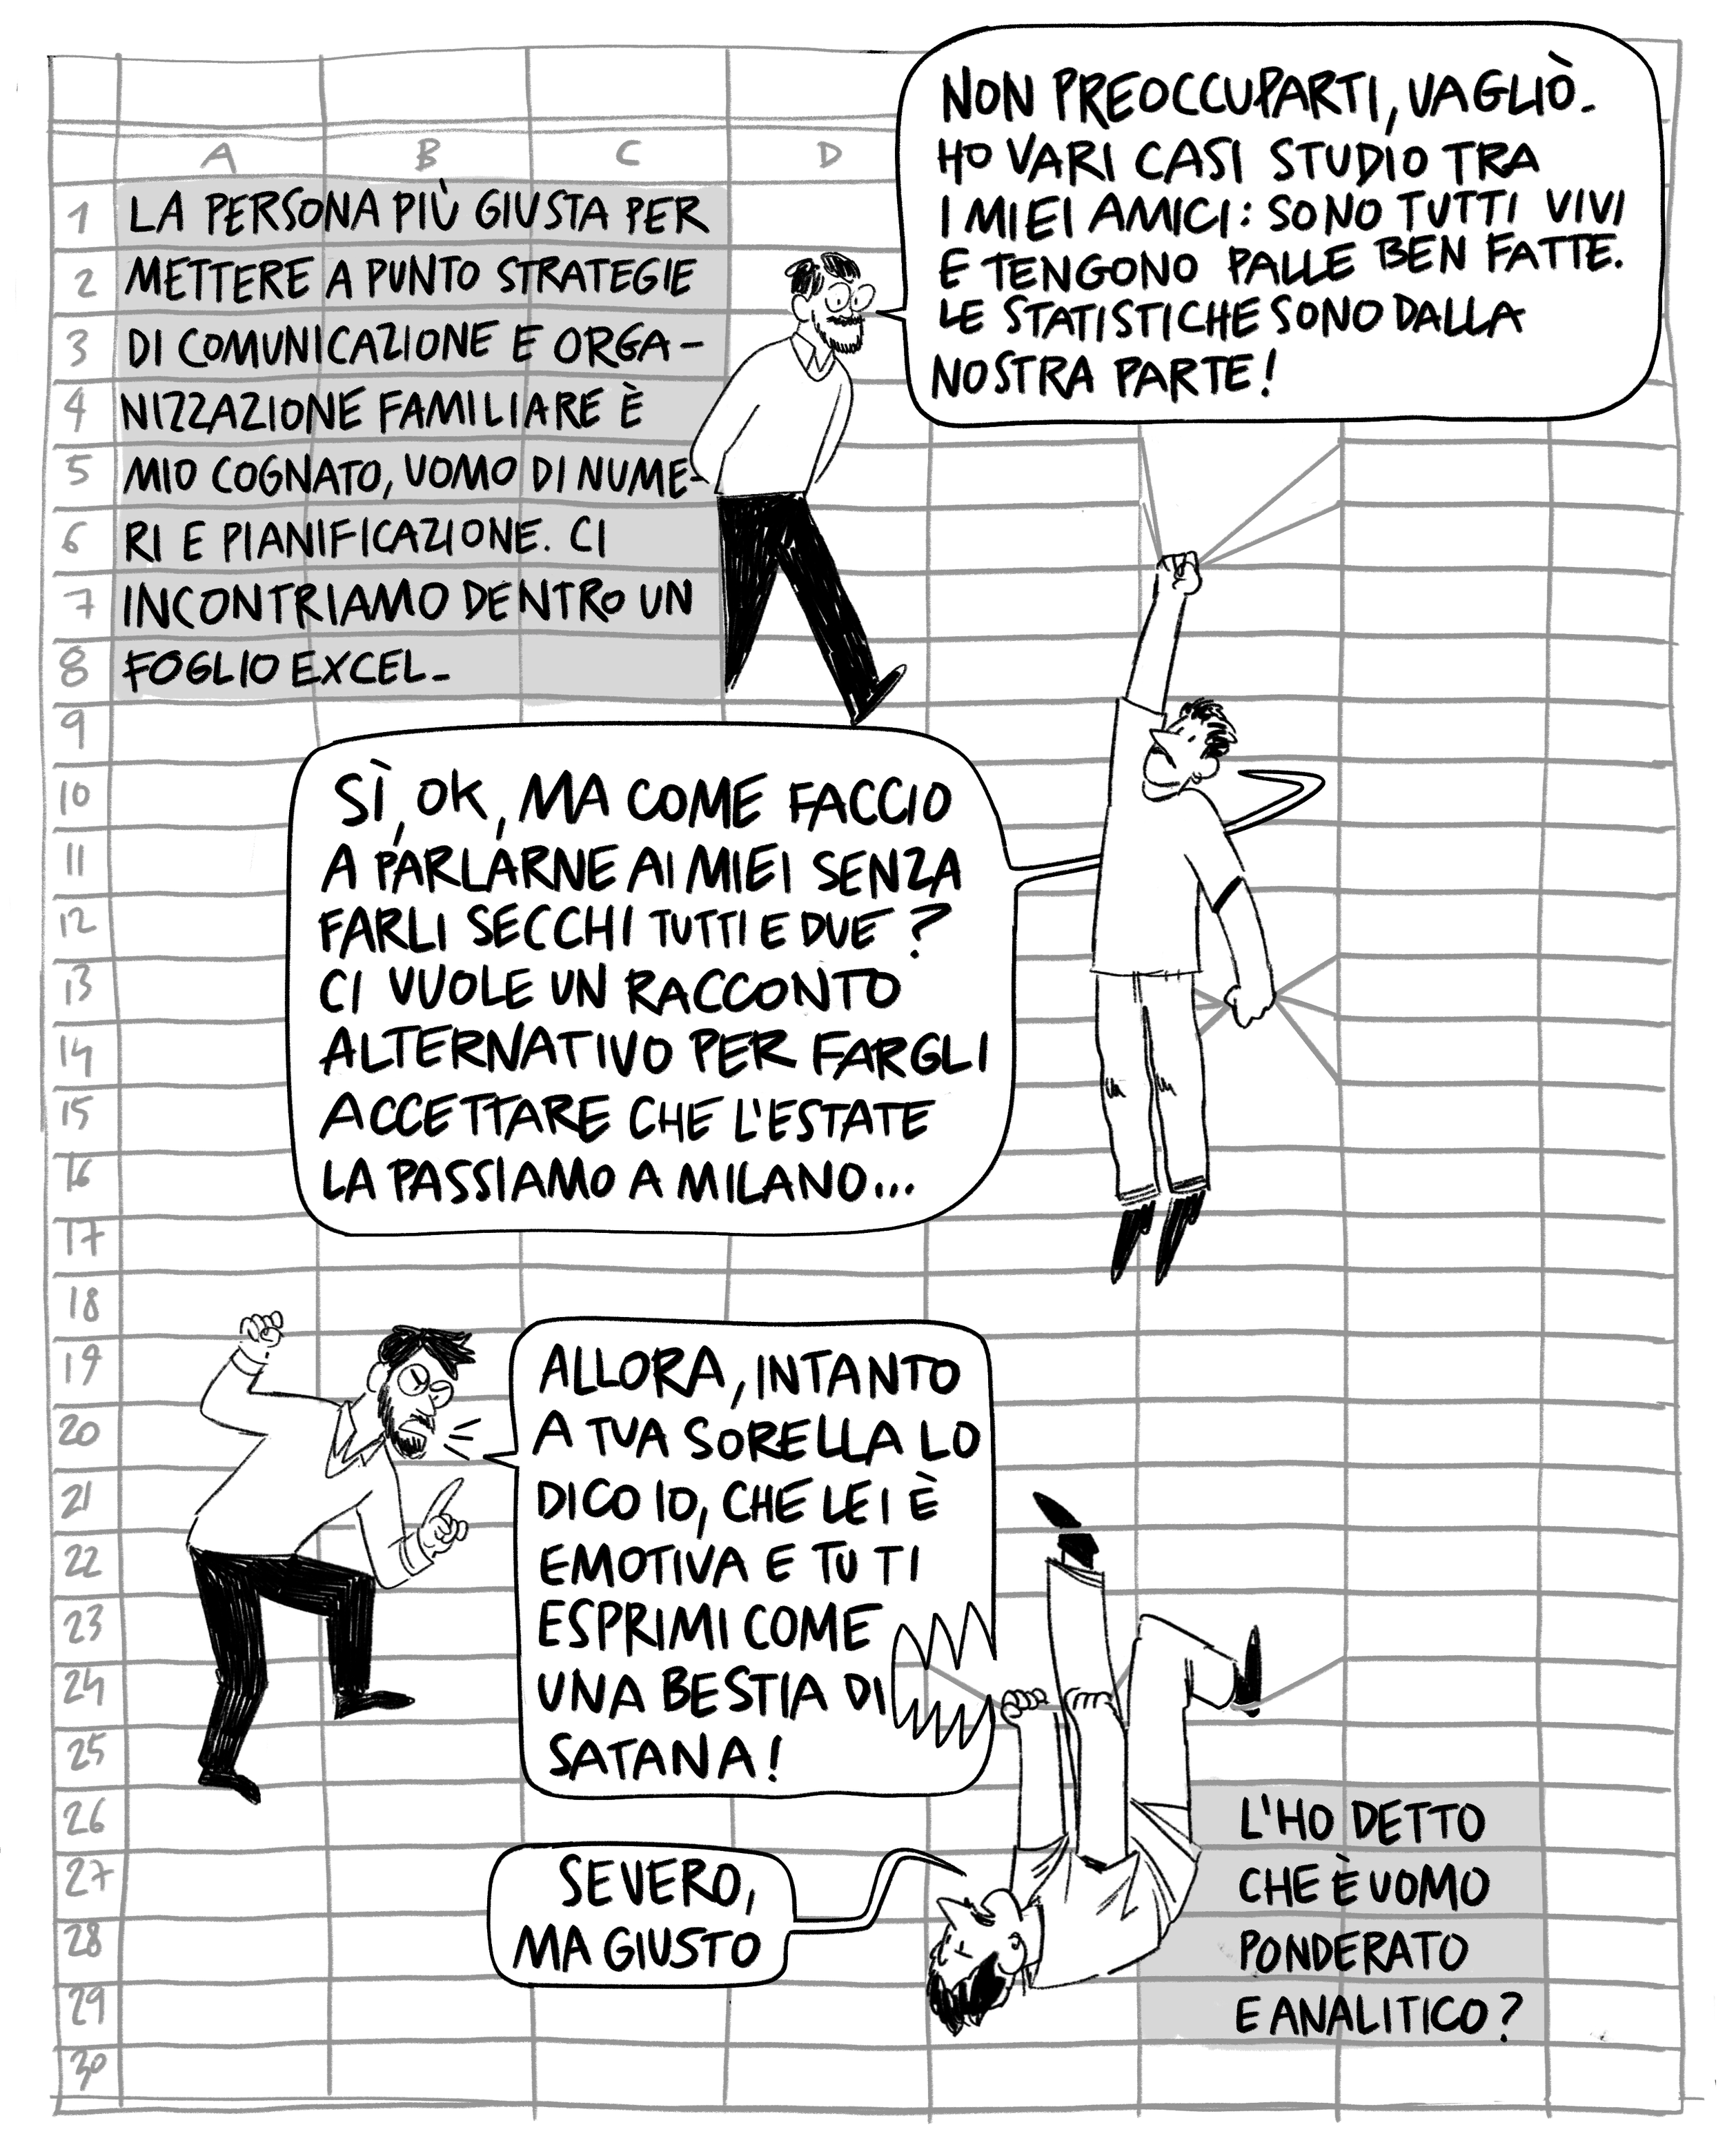 A B C D
1
2
3
4
5
6
7
8
9
10
11
12
13
14
15
16
17
18
19
20
21
22
23
24
25
26
27
28
29
30
LA PERSONA PIÙ GIUSTA PER
METTERE A PUNTO STRATEGIE
DI COMUNICAZIONE E ORGA-
NIZZAZIONE FAMILIARE È
MIO COGNATO, UOMO DI NUME-
RI E PIANIFICAZIONE. CI
INCONTRIAMO DENTRO UN
FOGLIO EXCEL_
NON PREOCCUPARTI, VAGLIÒ_
HO VARI CASI STUDIO TRA
I MIEI AMICI: SONO TUTTI VIVI
E TENGONO PALLE BEN FATTE.
LE STATISTICHE SONO DALLA
NOSTRA PARTE!
SÌ, OK, MA COME FACCIO
A PARLARNE AI MIEI SENZA
FARLI SECCHI TUTTI E DUE?
CI VUOLE UN RACCONTO
ALTERNATIVO PER FARGLI
ACCETTARE CHE L'ESTATE
LA PASSIAMO A MILANO...
ALLORA, INTANTO
A TUA SORELLA LO
DICO IO, CHE LEI È
EMOTIVA E TU TI
ESPRIMI COME
UNA BESTIA DI
SATANA!
SEVERO,
MA GIUSTO
L'HO DETTO
CHE È UOMO
PONDERATO
E ANALITICO?